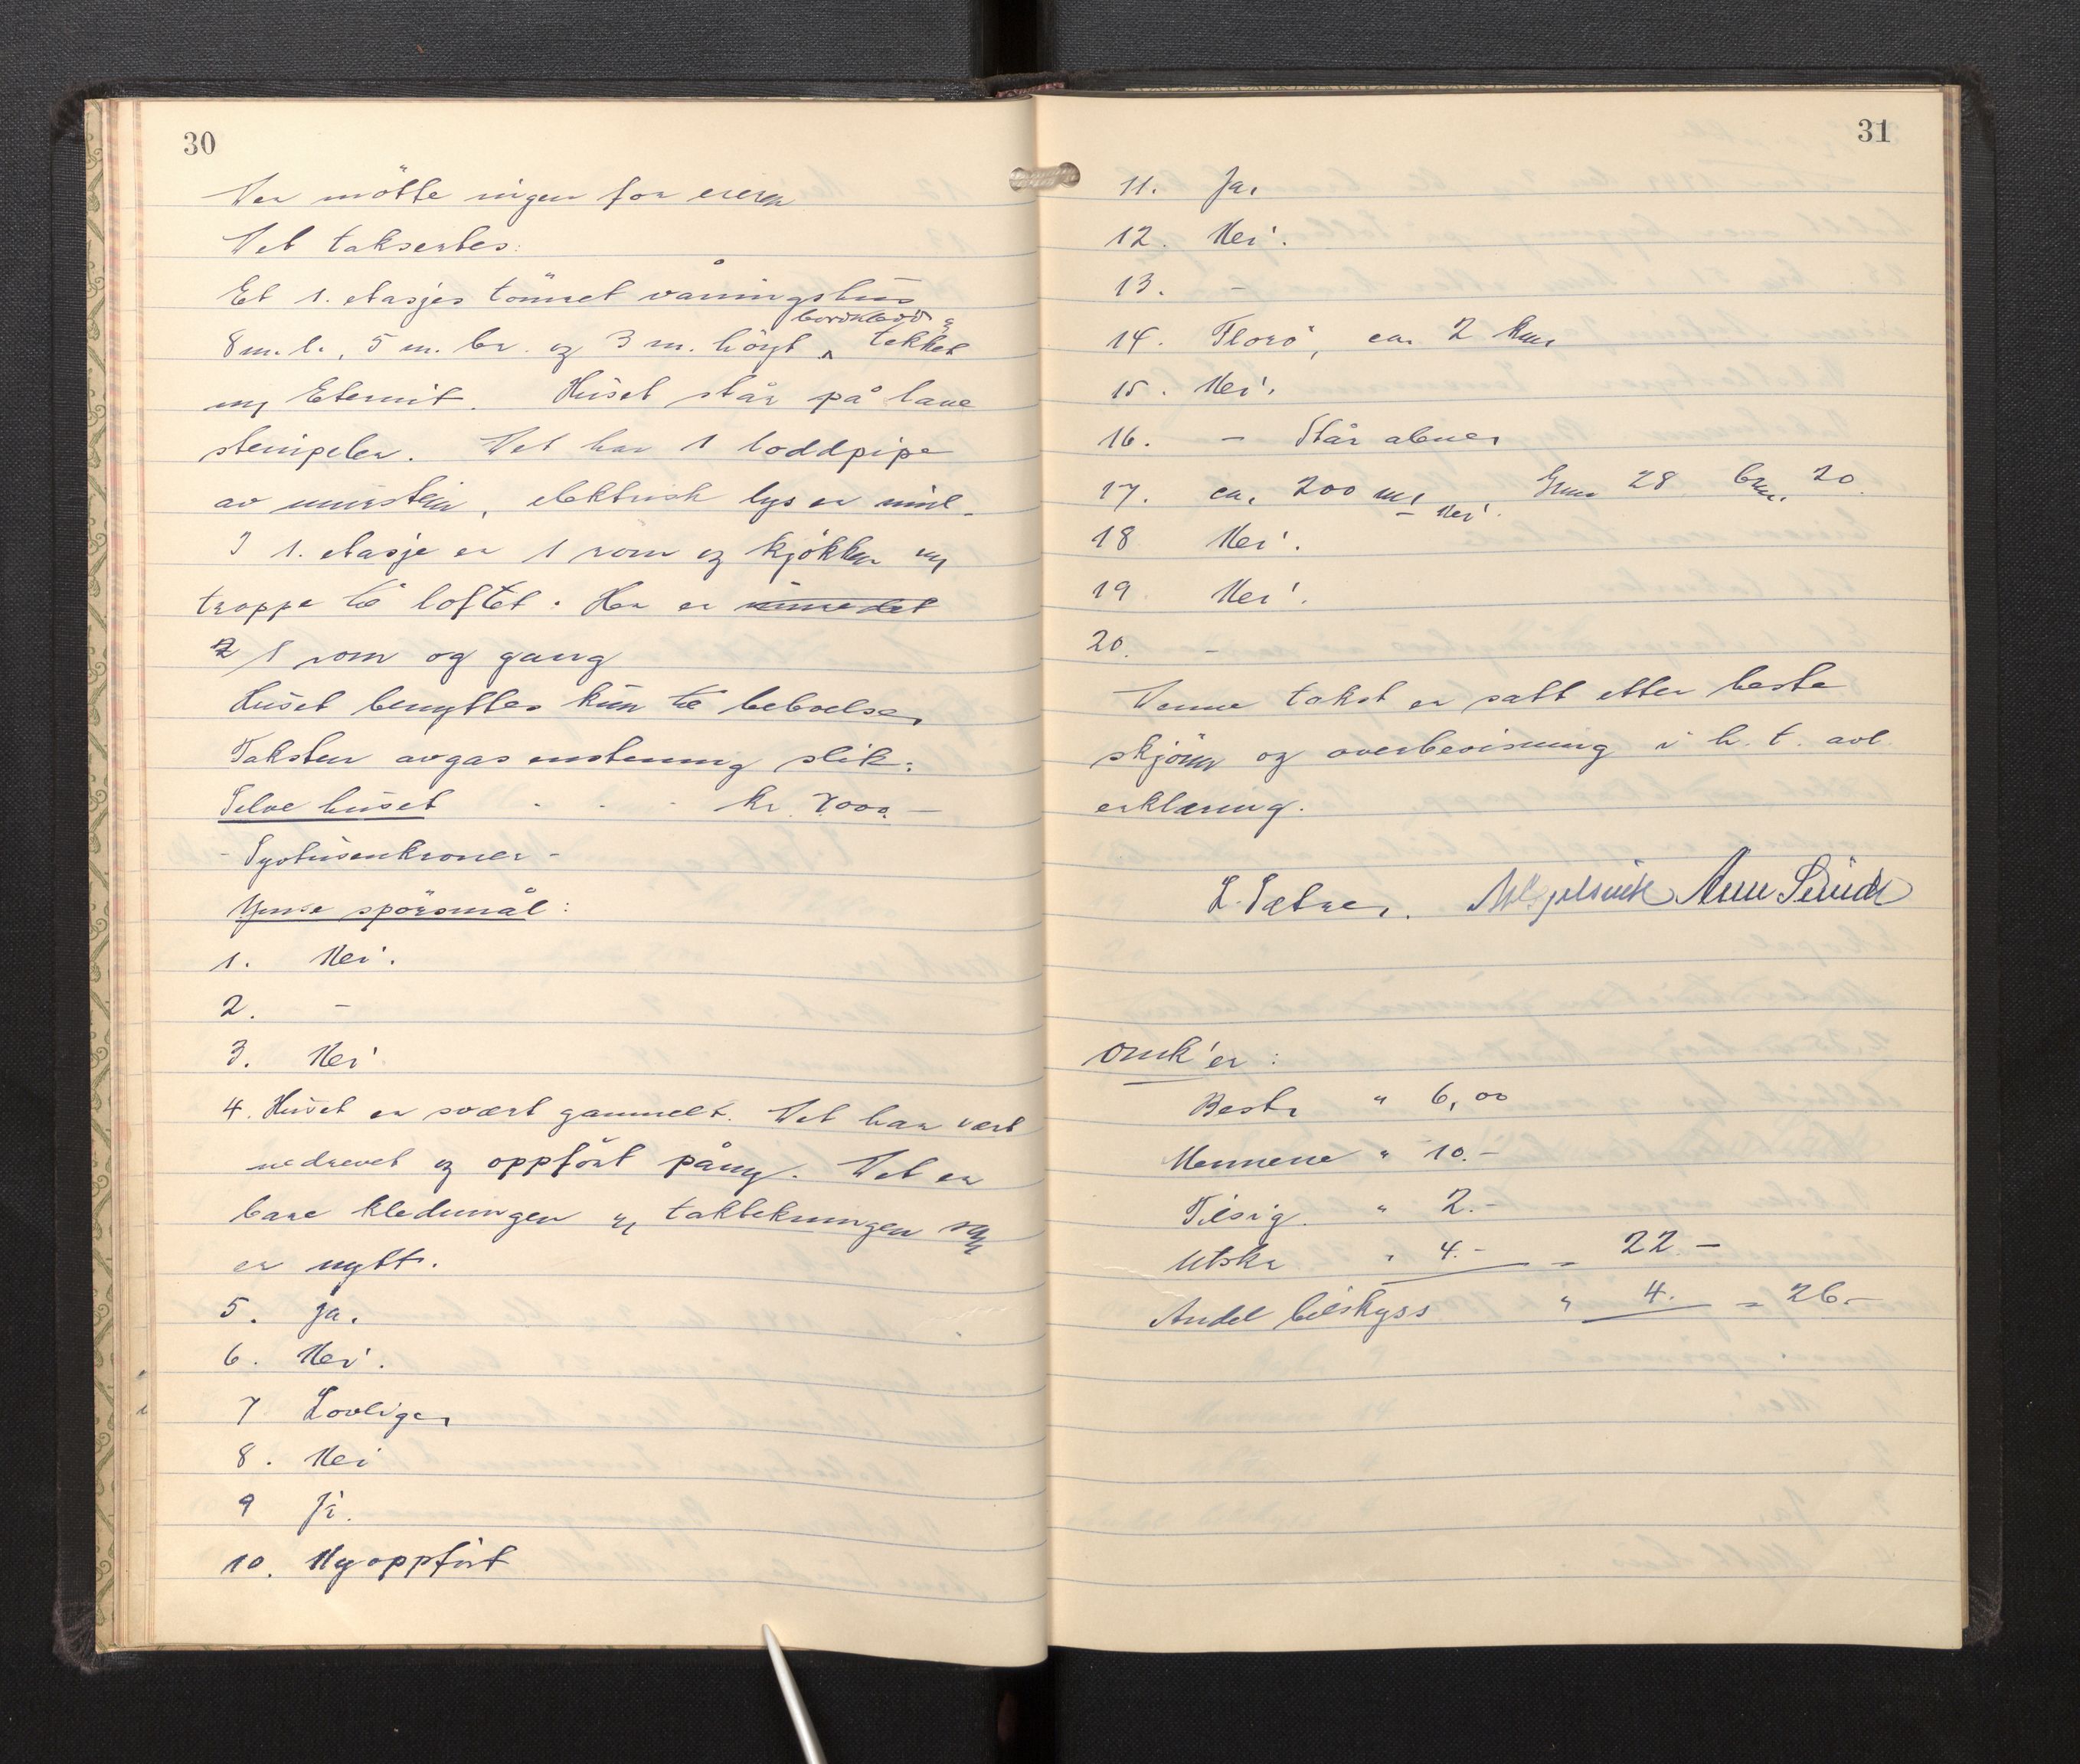 30
Der mötte ingen for eieren
Det taksertes:
Et 1. etasjes tömret våningshus
8 m. l., 5 m. br. og 3 m. höyt, bordkledd og tekket
m/ Eternit. Huset står på lave
steinpeler. Det har 1 loddpipe
av murstein, elektrisk lys er innl.
I 1. etasje er 1 rom og kjøkken m/
trappe til loftet. Her er innredet
2 1 rom og gang
Huset benyttes kun til beboelse.
Taksten avgas enstemmig slik:
Selve huset - - - kr. 7000.-
- Syvtusenkroner -
Ymse spörsmål:
1. Nei.
2. -
3. Nei
4. Huset er svært gammelt. Det har vært
nedrevet og oppfört påny. Det er
bare kledningen og taktekningen som
er nytt.
5. Ja.
6. Nei.
7 Lovlige.
8. Nei
9 Ja.
10. Ny oppfört
31
11. Ja.
12. Nei.
13. -
14. Florö, ca. 2 km.
15. Nei.
16. - Står alene.
17. ca. 200 m. - Nei. Gnr. 28 bnr. 20.
18 Nei.
19 Nei.
20. -
Denne takst er satt etter beste
skjönn og overbevisning i h. t. avl.
erklæring.
L. Sætre. Arne
Omk'er:
Bestr " 6,00
Mennene " 10.-
Tilsig. " 2.-
Utskr " 4.- = 22 -
Andel bilskyss " 4. = 26.-